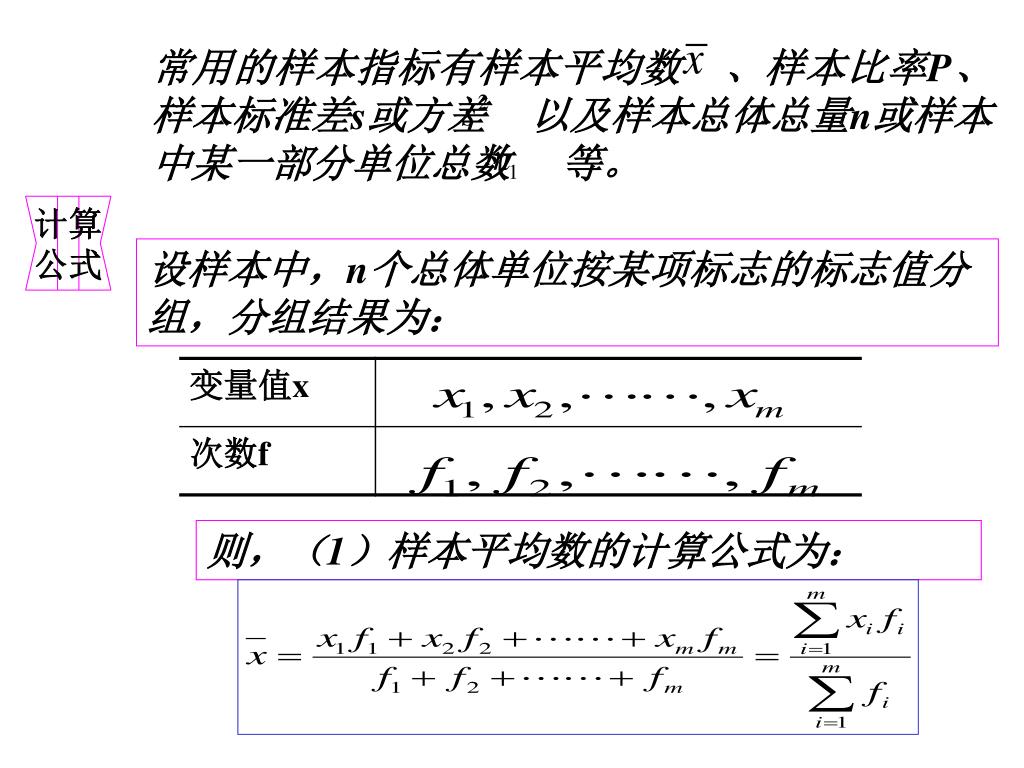 常用的样本指标有样本平均数x̄ 、样本比率P、
样本标准差s或方差² 以及样本总体总量n或样本
中某一部分单位总数₁ 等。
计算
公式
设样本中，n个总体单位按某项标志的标志值分
组，分组结果为：
变量值x x₁, x₂, ⋯⋯, xₘ
次数f f₁, f₂, ⋯⋯, fₘ
则，（1）样本平均数的计算公式为：
x̄ = (x₁f₁ + x₂f₂ + ⋯⋯ + xₘfₘ) / (f₁ + f₂ + ⋯⋯ + fₘ) = ∑_{i=1}^{m} xᵢfᵢ / ∑_{i=1}^{m} fᵢ